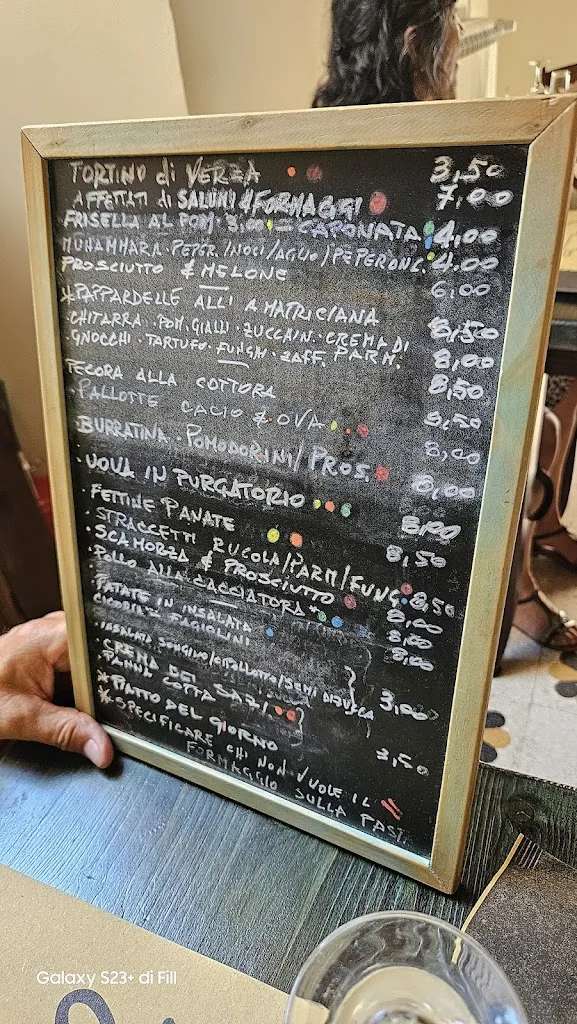 TORTINO di VERZA 3,50
AFFETTATI di SALUMI & FORMAGGI 7,00
FRISELLA AL POM. 3,00 - CAPONATA 4,00
MUHAMMARA. PEPER./NOCI/AGLIO/PEPERONC. 4.00
PROSCIUTTO & MELONE 6,00
*PAPPARDELLE ALL'AMATRICIANA 8,50
CHITARRA. POM. GIALLI. ZUCCHIN. CREMA DI PARM. 8,00
GNOCCHI. TARTUFO. FUNGHI. ZAFF. 8,50
PECORA ALLA COTTORA 9,50
PALLOTTE CACIO & OVA 8,00
BURRATINA. POMODORINI/PROS. 8,00
UOVA IN PURGATORIO
FETTINE PANATE 8,50
STRACCETTI RUCOLA/PARM/FUNG. 8,50
SCAMORZA & PROSCIUTTO 8,00
POLLO ALLA CACCIATORA* 8,00
PATATE IN INSALATA 8,00
FAGIOLINI
INSALATA SONGINO/CIPOLLOTTO/SEMI DI ZUCCA 3,00
CREMA DEI
PANNA COTTA 3,50
*PIATTO DEL GIORNO
*SPECIFICARE CHI NON VUOLE IL
FORMAGGIO SULLA PASTA
Galaxy S23+ di Fill